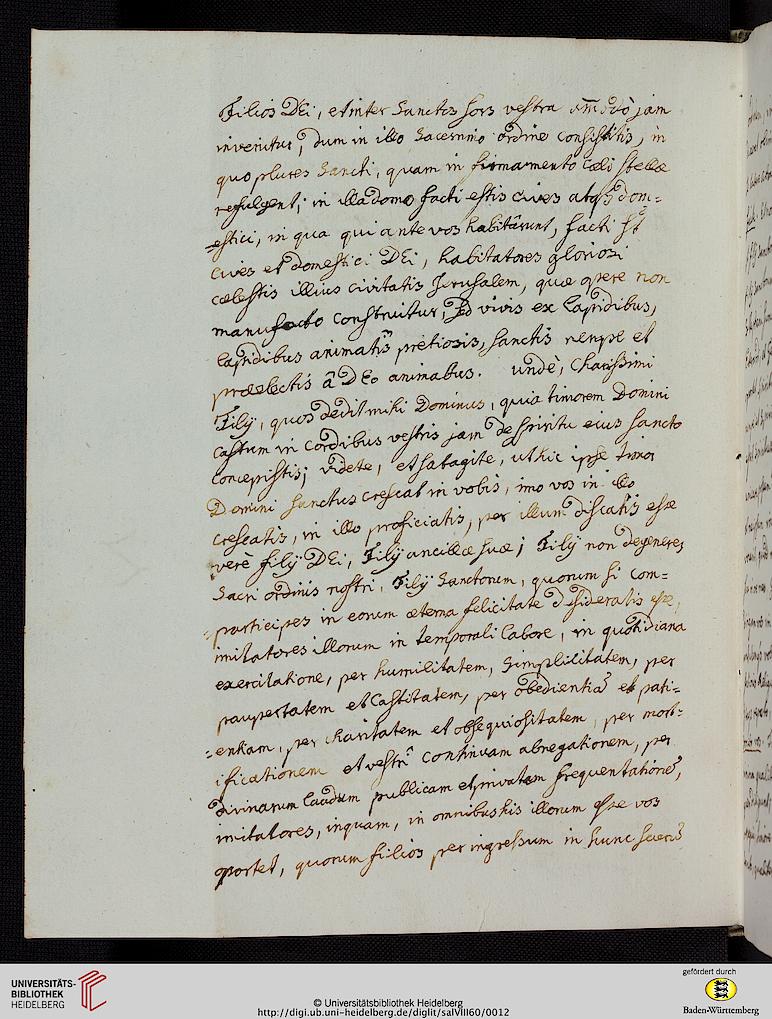 Filios DEi, et inter Sanctos sors vestra jam
invenitur, dum in illo Sacerrimo ordine consistitis, in
quo plures Sancti, quam in firmamento cœli stellæ
refulgent; in illa domo facti estis cives atqꝫ dom=
=estici, in qua qui ante vos habitârunt, facti st̃
cives et domestici DEi, habitatores gloriosi
cælestis illius civitatis Jerusalem, quæ opere non
manufacto construitur, sed vivis ex Lapidibus,
Lapidibus animatis pretiosis, sanctis nempe et
præelectis â DEo animabus. undè, Charissimi
Filÿ, quos dedit mihi Dominus, quia timorem Domini
castum in cordibus vestris jam de spiritu ejus sancto
concepistis; videte, et satagite, ut hic ipse timor
Domini sanctus crescat in vobis, imo vos in illo
crescatis, in illo proficiatis, per illum discatis esse
verè filÿ DEi, Filÿ ancillæ suæ; Filÿ non degeneres
Sacri ordinis nostri, Filÿ Sanctorum, quorum si com=
=participes in eorum æterna felicitate desideratis esse,
imitatores illorum in temporali labore, in quotidiana
exercitatione, per humilitatem, Simplicitatem, per
paupertatem et Castitatem, per obedientiã et pati=
=entiam, per charitatem et obsequiositatem, per mort=
ificationem et vestri continuam abnegationem, per
divinarum laudum publicam et privatam frequentationẽ,
imitatores, inquam, in omnibus his illorum esse vos
oportet, quorum filios per ingressum in hunc sacrũ
UNIVERSITÄTS-
BIBLIOTHEK
HEIDELBERG
© Universitätsbibliothek Heidelberg
http://digi.ub.uni-heidelberg.de/diglit/salVIII60/0012
gefördert durch
Baden-Württemberg